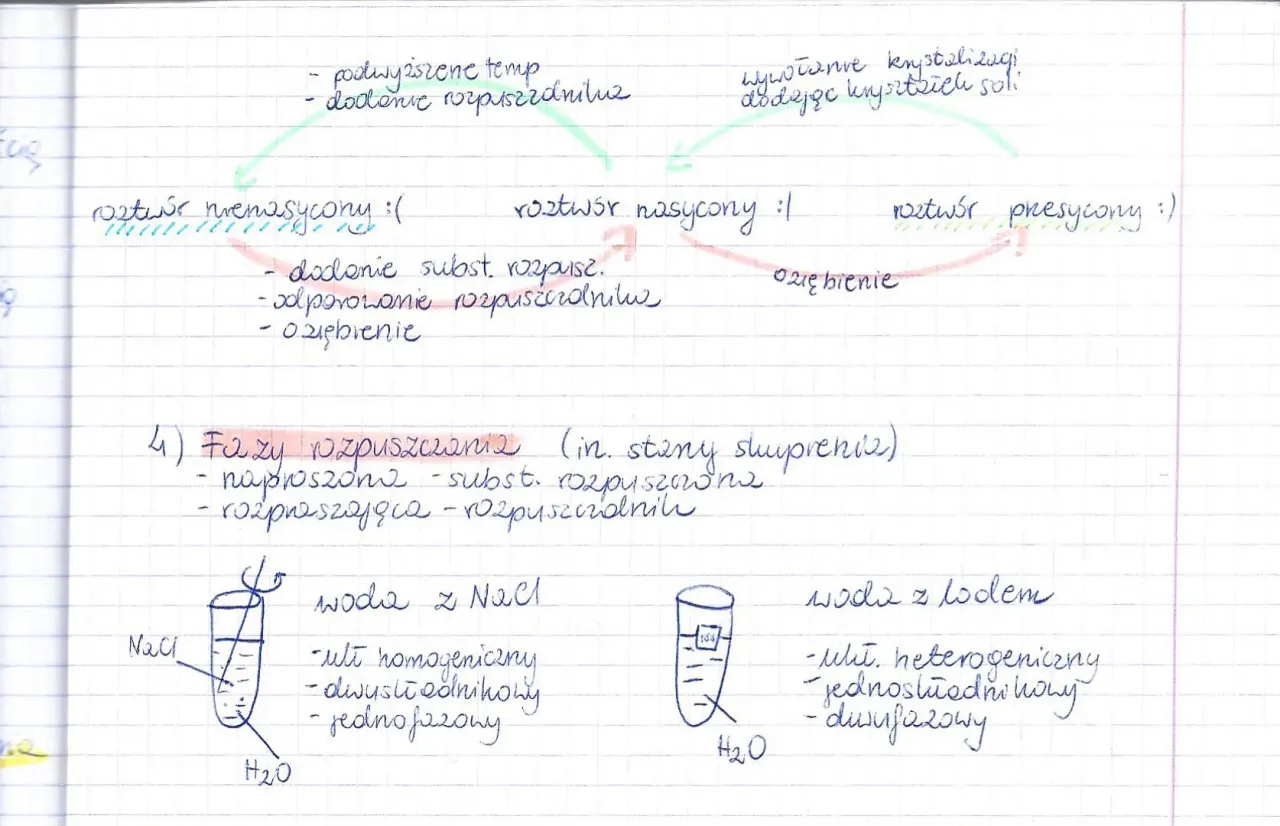 - podwyższene temp
- dodanie rozpuszczalnika
wywołanie krystalizacji
dodając kryształek soli
roztwór nienasycony :(
roztwór nasycony :|
roztwór przesycony :)
- dodanie subst. rozpusz.
- odparowanie rozpuszczalnika
- oziębienie
oziębienie
4) Fazy rozpuszczania (in. stany skupienia)
- naproszona - subst. rozpuszczona
- rozpraszająca - rozpuszczalnik
woda z NaCl
NaCl
- ukł homogeniczny
- dwuskładnikowy
- jednofazowy
H2O
woda z lodem
- ukł. heterogeniczny
- jednoskładnikowy
- dwufazowy
H2O